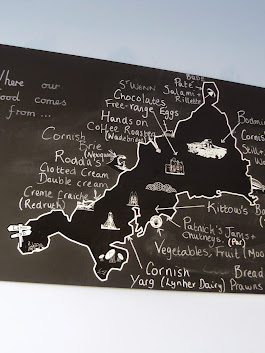 Where our
food comes
from ...
Bude
Paté
Salami +
Rillette
St WENN
Chocolates
Free-range Eggs
Hands on
Coffee Roasters
(Wadebridge)
Cornish
Brie
Rodda's
Clotted Cream
Double cream
Creme Fraiche
(Redruth)
Bodmin
Cornish
Still +
Kittow's
Patrick's Jams +
Chutneys. (Par)
Vegetables, Fruit
Cornish
Yarg (Lynher Dairy)
Bread
Prawns